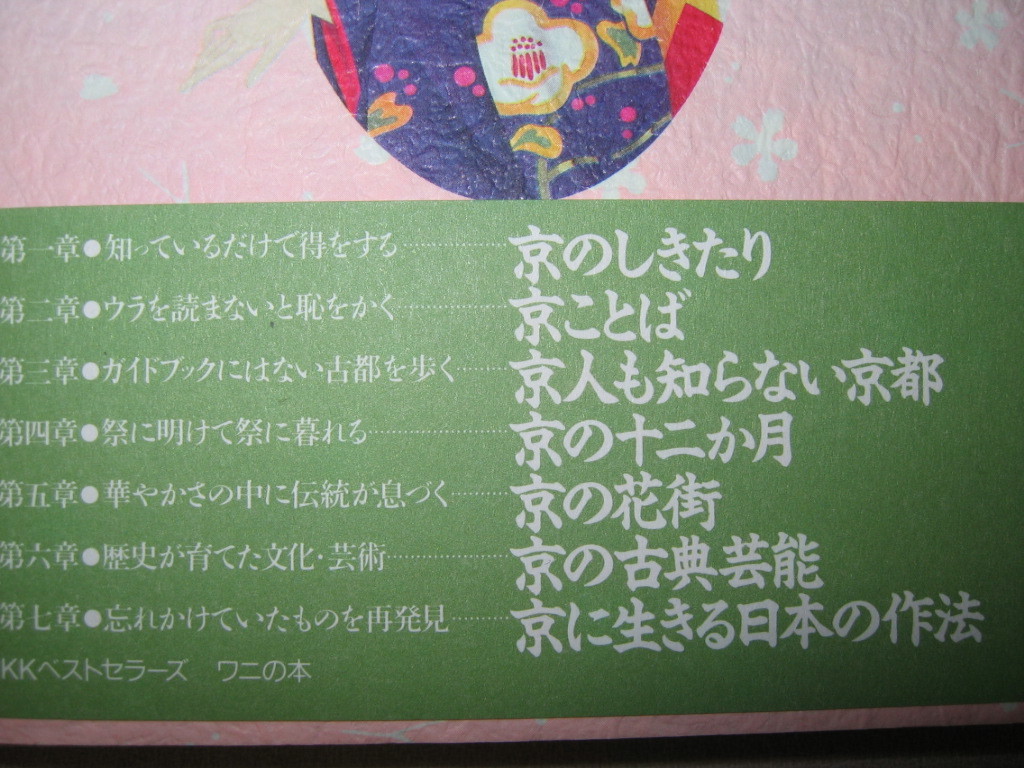 第一章●知っているだけで得をする………京のしきたり
第二章●ウラを読まないと恥をかく………京ことば
第三章●ガイドブックにはない古都を歩く………京人も知らない京都
第四章●祭に明けて祭に暮れる………京の十二か月
第五章●華やかさの中に伝統が息づく………京の花街
第六章●歴史が育てた文化・芸術………京の古典芸能
第七章●忘れかけていたものを再発見………京に生きる日本の作法
KKベストセラーズ ワニの本